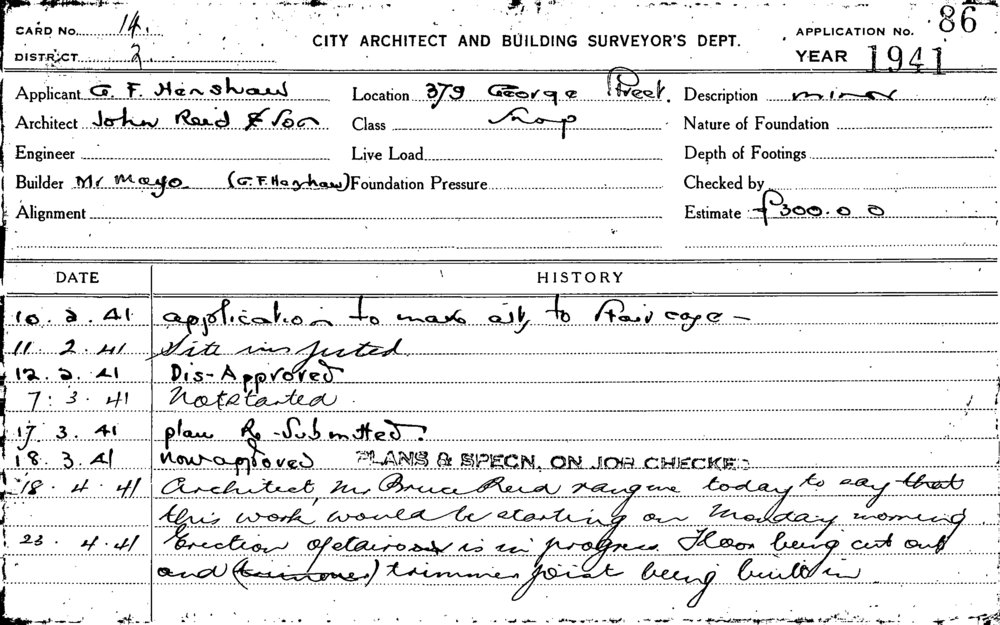 CARD No. 14.
DISTRICT 2
CITY ARCHITECT AND BUILDING SURVEYOR'S DEPT.
APPLICATION No. 86
YEAR 1941
Applicant G. F. Henshaw Location 379 George Street. Description minor
Architect John Reid & Son Class Shop Nature of Foundation
Engineer Live Load Depth of Footings
Builder Mr Mayo (G.F. Henshaw) Foundation Pressure Checked by
Alignment Estimate £300.0 0
DATE HISTORY
10. 2. 41 application to make to Stair case -
11. 2. 41 Site inspected
12. 2. 41 Dis-Approved
7. 3. 41 Not started.
17. 3. 41 plan Re-Submitted.
18. 3. 41 now approved PLANS & SPECN. ON JOB CHECKED
18. 4. 41 Architect, Mr Bruce Reid rang me today to say that
this work would be starting on Monday morning.
23. 4. 41 Erection of stairs is in progress. Floor being cut out
and trimmer joist being built in